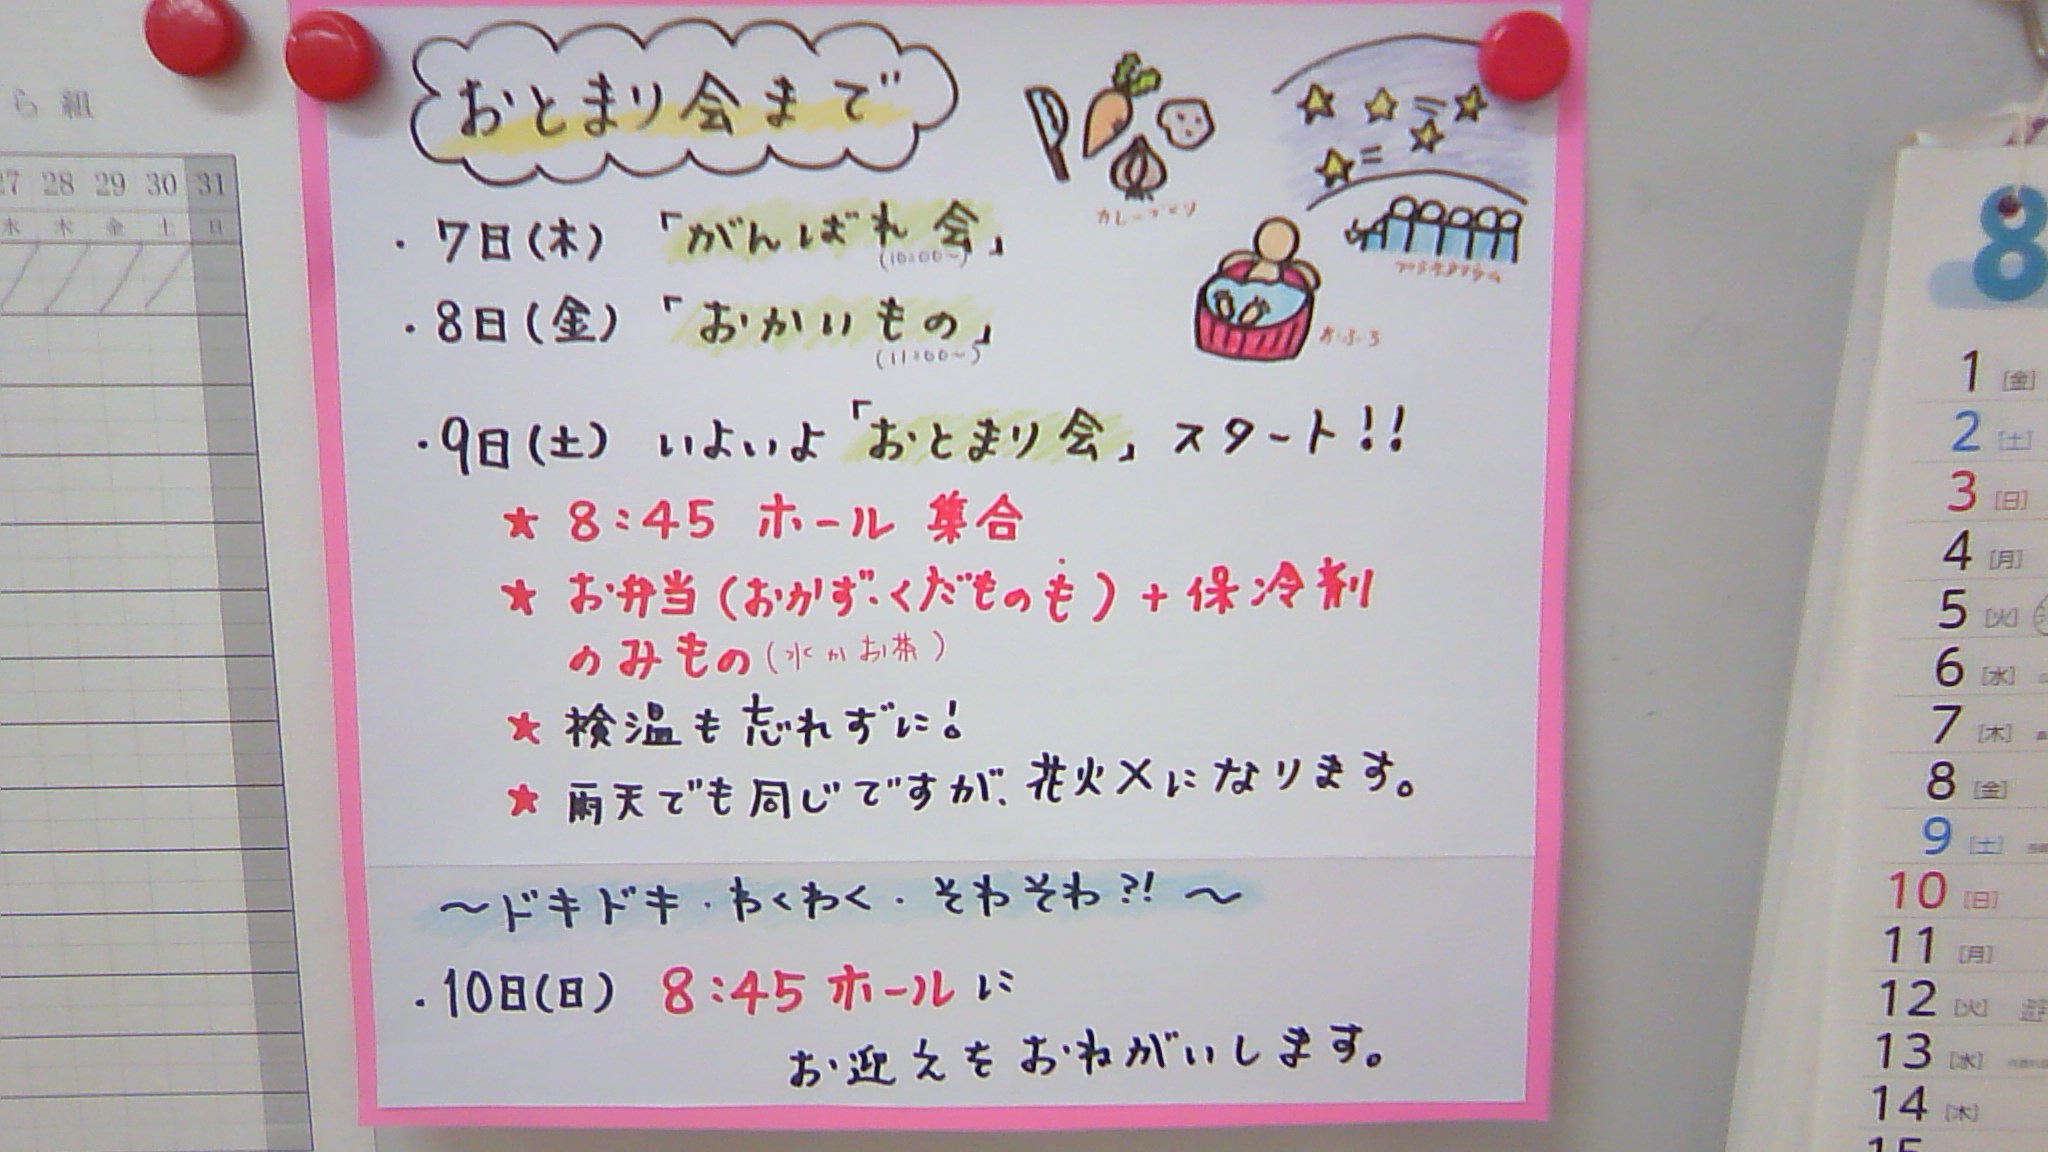 ら組
27 28 29 30 31
水 木 金 土 日
おとまり会まで
カレーづくり
プラネタリウム
おふろ
・7日(木) 「がんばれ会」
(10:00〜)
・8日(金) 「おかいもの」
(11:00〜)
・9日(土) いよいよ「おとまり会」スタート!!
★ 8:45 ホール 集合
★ お弁当(おかず・くだものも)+保冷剤
のみもの(水かお茶)
★ 検温も忘れずに!
★ 雨天でも同じですが、花火×になります。
〜ドキドキ・わくわく・そわそわ?!〜
・10日(日) 8:45 ホールに
お迎えをおねがいします。
8
1 [金]
2 [土]
3 [日]
4 [月]
5 [火]
6 [水]
7 [木]
8 [金]
9 [土]
10 [日]
11 [月]
12 [火]
13 [水]
14 [木]
15